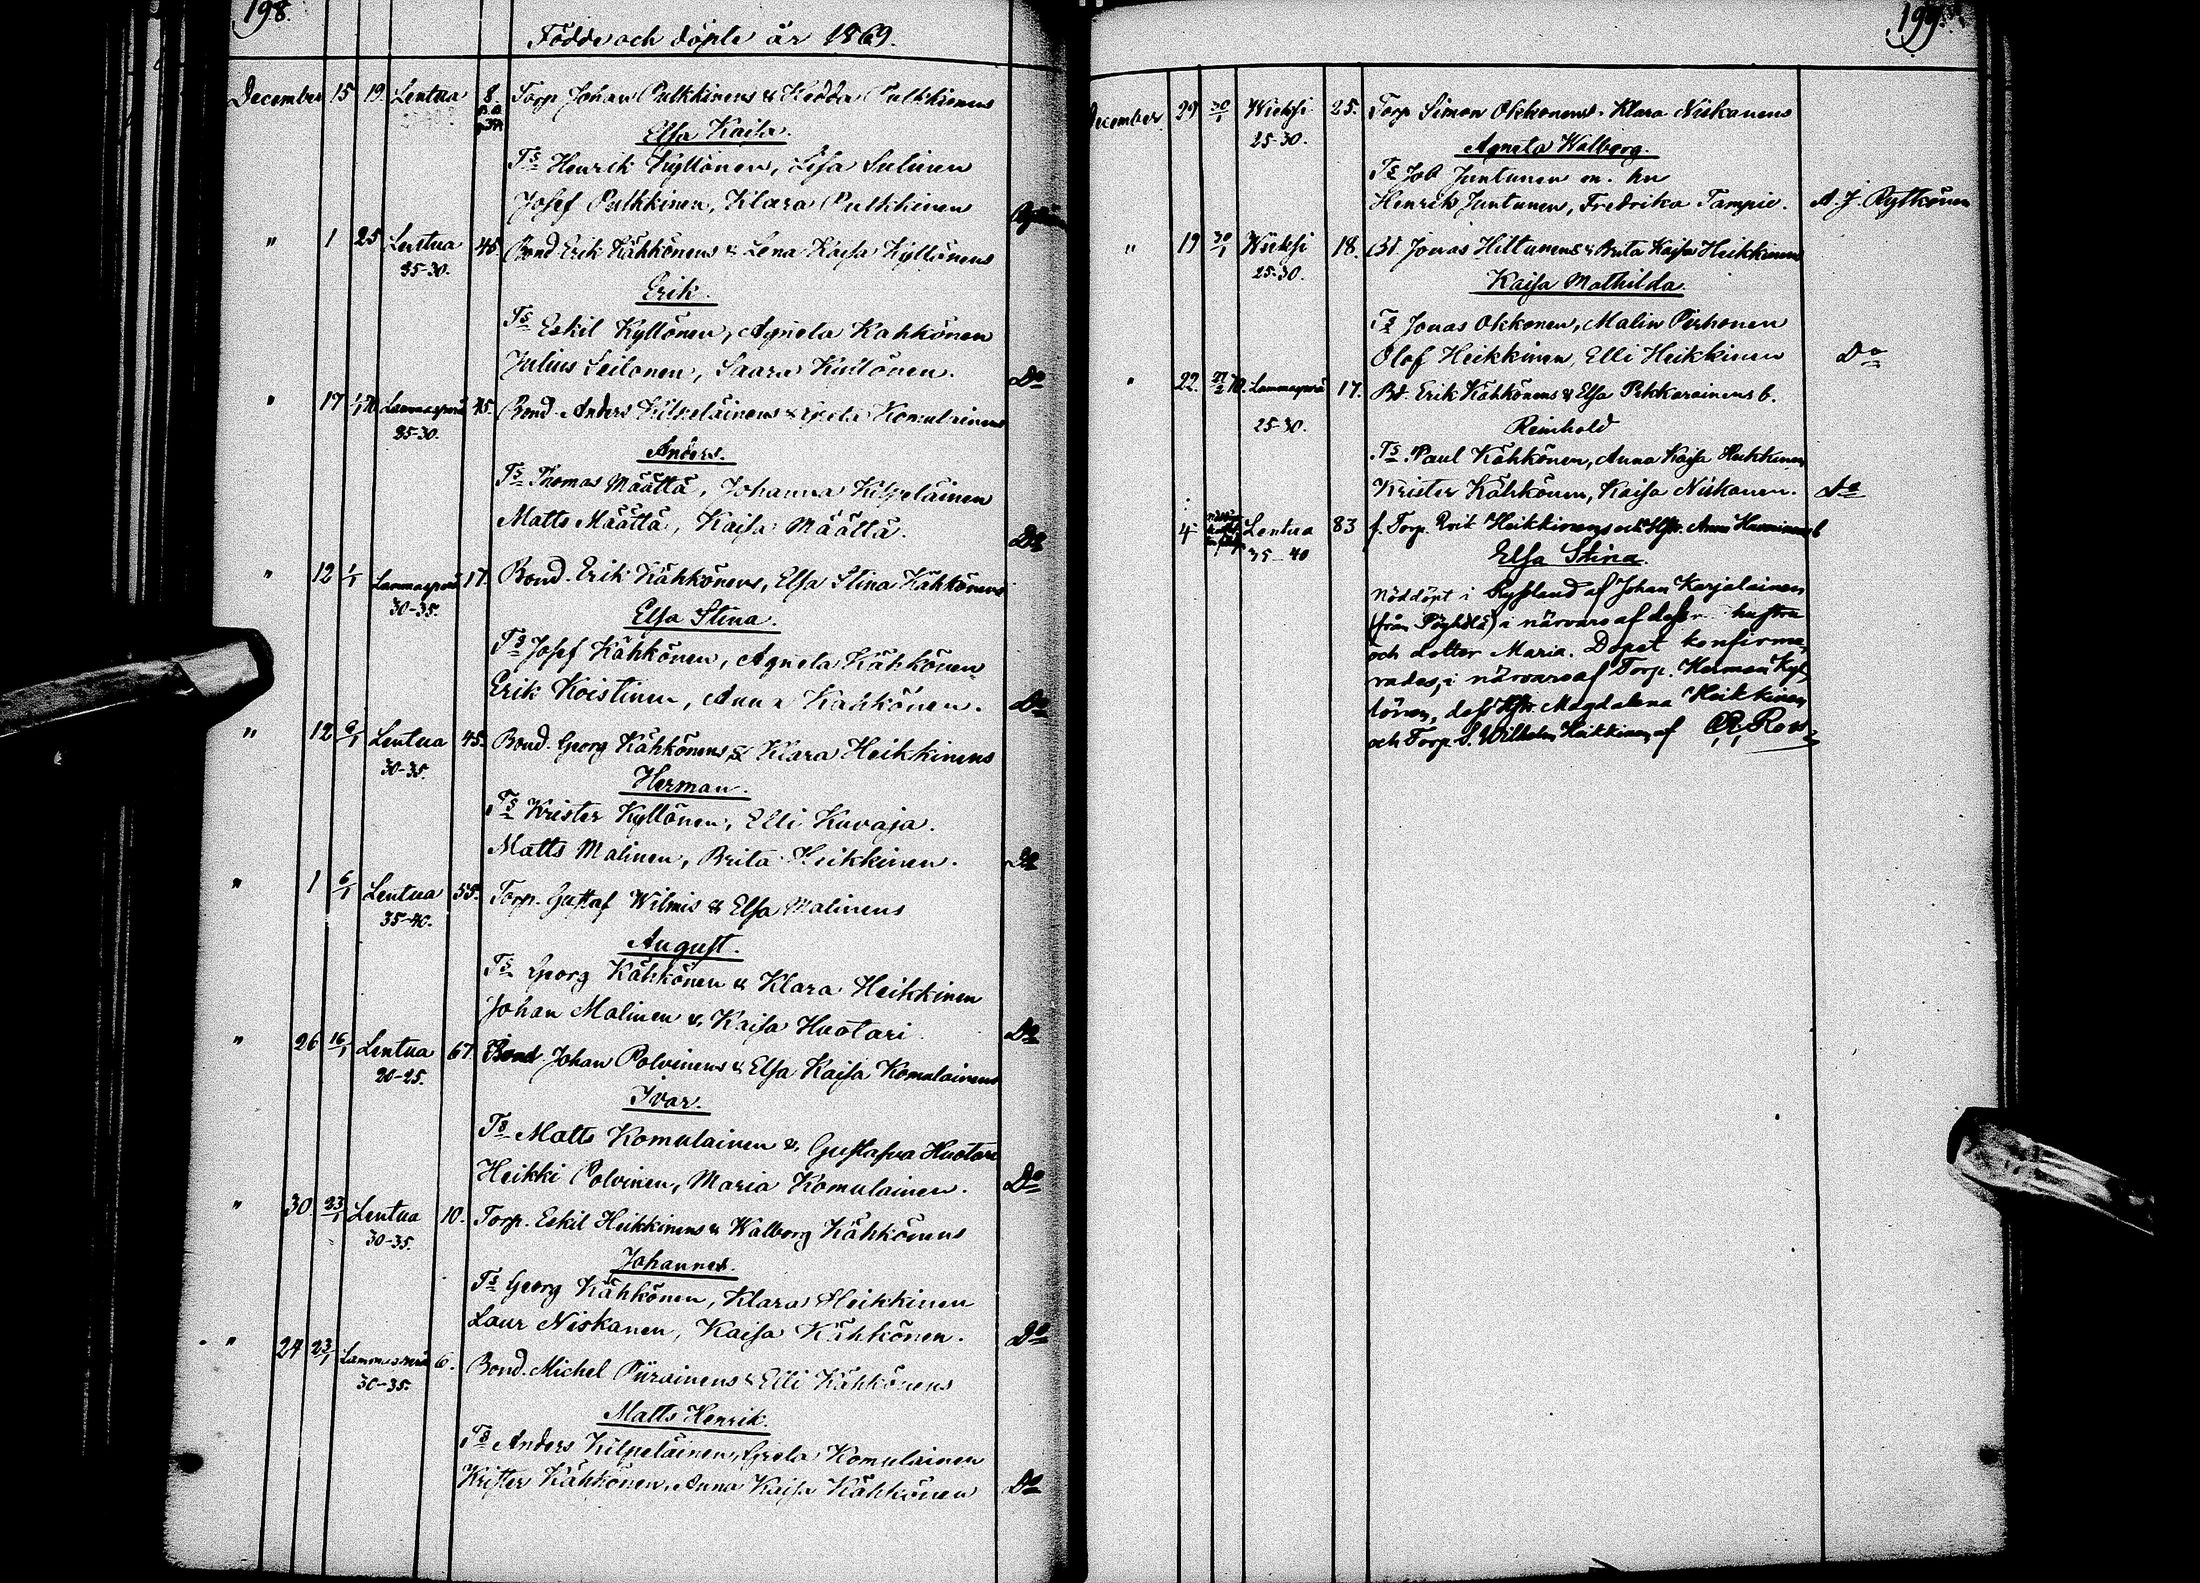 198.
Födde och döpte år 1869.
December 15 19 Lentua 8 Torp Johan Pulkkinens & Hedda Pulkkinens
Elsa Kaisa.
Ts Henrik Kyllönen, Lisa Sulinen
Josef Pulkkinen, Klara Pulkkinen
" 1 25 Lentua 45. Bond Erik Kähkönens & Lena Kaisa Kyllönens
25-30.
Erik.
Ts Eskil Kyllönen, Agneta Kahkönen
Julius Seilonen, Saara Kyllönen. Do
" 17 1/1 70 Lammasperä 45. Bond. Anders Kilpeläinens & Greta Komulainens
25-30.
Anders.
Ts Thomas Määttä, Johanna Kilpeläinen
Matts Määttä, Kaisa Määttä. Do
" 12 1/1 Lammasperä 17. Bond. Erik Kähkönens, Elsa Stina Kähkönens
30-35.
Elsa Stina.
Ts Josef Kähkönen, Agneta Kähkönen
Erik Koistinen, Anna Kahkönen. Do
" 12 6/1 Lentua 45. Bond. Georg Kähkönens & Klara Heikkinens
30-35.
Herman.
Ts Krister Kyllönen, Elli Kuvaja.
Matts Malinen, Brita Heikkinen. Do
" 1 6/1 Lentua 55. Torp. Gustaf Wilmis & Elsa Malinens
35-40.
August.
Ts Georg Kähkönen & Klara Heikkinen
Johan Malinen & Kaisa Huotari. Do
" 26 16/1 Lentua 67. Bond. Johan Polvinens & Elsa Kaisa Komulainens
20-25.
Ivar.
Ts Matts Komulainen & Gustafva Huotari
Heikki Polvinen, Maria Komulainen. Do
" 30 23/1 Lentua 10. Torp. Eskil Heikkinens & Walborg Kähkönens
30-35.
Johannes.
Ts Georg Kähkönen, Klara Heikkinen
Laur Niskanen, Kaisa Kähkönen. Do
" 24 23/1 Lammasperä 6. Bond. Michel Piirainens & Elli Kähkönens
30-35.
Matts Henrik.
Ts Anders Kilpeläinen, Greta Komulainen
Krister Kähkönen, Anna Kaisa Kähkönen Do
199.
December 29 30/1 Wieksi 25. Torp Simon Okkonens. Klara Niskanens
25-30.
Agneta Walborg.
Ts Job Juntunen m. hu
Henrik Juntunen, Fredrika Tampio. A. J. Rytkönen
" 19 30/1 Wieksi 18. Bd. Jonas Hiltunens & Brita Kaisa Heikkinens
25-30.
Kaisa Mathilda.
Ts Jonas Okkonen, Malin Pirhonen
Olof Heikkinen, Elli Heikkinen Do
" 22. 27/2 70. Lammasperä 17. Bd. Erik Kähkönens & Elsa Pekkarainens b.
25-30.
Reinhold
Ts Paul Kähkönen, Anna Kaisa Heikkinen
Krister Kähkönen, Kaisa Niskanen. Do
4 Lentua 83 f. Torp. Erik Heikkinens och Hstr. Anna Huovinens b
35-40
Elsa Stina.
Nöddöpt i Ryssland af Johan Karjalainen
(från) i närvaro af dess hustru
och dotter Maria. Dopet konfirme-
rades, i närvaro af Torp. Herman Kyl-
lönen, dess Hstr. Magdalena Heikkinen
och Torp. S. Wilhelm Heikkinen, af